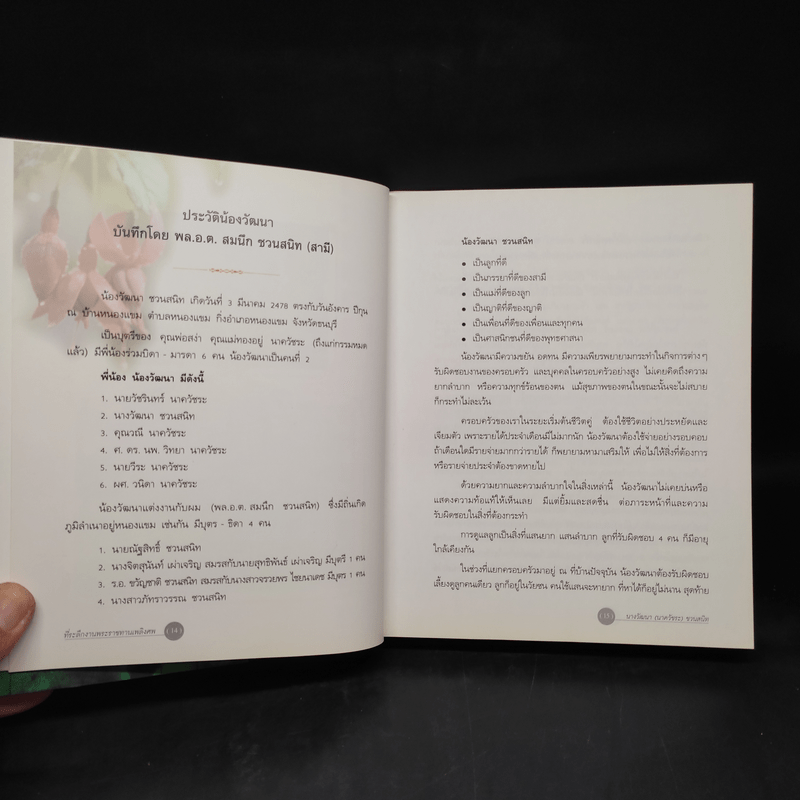 ประวัติน้องวัฒนา
บันทึกโดย พล.อ.ต. สมนึก ชวนสนิท (สามี)
น้องวัฒนา ชวนสนิท เกิดวันที่ 3 มีนาคม 2478 ตรงกับวันอังคาร ปีกุน
ณ บ้านหนองแขม ตำบลหนองแขม กิ่งอำเภอหนองแขม จังหวัดธนบุรี
เป็นบุตรีของ คุณพ่อสง่า คุณแม่ทองอยู่ นาควัชระ (ถึงแก่กรรมหมด
แล้ว) มีพี่น้องร่วมบิดา - มารดา 6 คน น้องวัฒนาเป็นคนที่ 2
พี่น้อง น้องวัฒนา มีดังนี้
1. นายวัชรินทร์ นาควัชระ
2. นางวัฒนา ชวนสนิท
3. คุณวณี นาควัชระ
4. ศ. ดร. นพ. วิทยา นาควัชระ
5. นายวีระ นาควัชระ
6. ผศ. วนิดา นาควัชระ
น้องวัฒนาแต่งงานกับผม (พล.อ.ต. สมนึก ชวนสนิท) ซึ่งมีถิ่นเกิด
ภูมิลำเนาอยู่หนองแขม เช่นกัน มีบุตร - ธิดา 4 คน
1. นายณัฐสิทธิ์ ชวนสนิท
2. นางจิตสุนันท์ เผ่าเจริญ สมรสกับนายสุทธิพันธ์ เผ่าเจริญ มีบุตรี 1 คน
3. ร.อ. ขวัญชาติ ชวนสนิท สมรสกับนางสาวจรวยพร ไชยนาเดช มีบุตร 1 คน
4. นางสาวภัทราวรรณ ชวนสนิท
ที่ระลึกงานพระราชทานเพลิงศพ (14)
น้องวัฒนา ชวนสนิท
● เป็นลูกที่ดี
● เป็นภรรยาที่ดีของสามี
● เป็นแม่ที่ดีของลูก
● เป็นญาติที่ดีของญาติ
● เป็นเพื่อนที่ดีของเพื่อนและทุกคน
● เป็นศาสนิกชนที่ดีของพุทธศาสนา
น้องวัฒนามีความขยัน อดทน มีความเพียรพยายามกระทำในกิจการต่างๆ
รับผิดชอบงานของครอบครัว และบุคคลในครอบครัวอย่างสูง ไม่เคยคิดถึงความ
ยากลำบาก หรือความทุกข์ร้อนของตน แม้สุขภาพของตนในขณะนั้นจะไม่สบาย
ก็กระทำไม่ละเว้น
ครอบครัวของเราในระยะเริ่มต้นชีวิตคู่ ต้องใช้ชีวิตอย่างประหยัดและ
เจียมตัว เพราะรายได้ประจำเดือนมีไม่มากนัก น้องวัฒนาต้องใช้จ่ายอย่างรอบคอบ
ถ้าเดือนใดมีรายจ่ายมากกว่ารายได้ ก็พยายามหามาเสริมให้ เพื่อไม่ให้สิ่งที่ต้องการ
หรือรายจ่ายประจำต้องขาดหายไป
ด้วยความยากและความลำบากใจในสิ่งเหล่านี้ น้องวัฒนาไม่เคยบ่นหรือ
แสดงความท้อแท้ให้เห็นเลย มีแต่ยิ้มและสดชื่น ต่อภาระหน้าที่และความ
รับผิดชอบในสิ่งที่ต้องกระทำ
การดูแลลูกเป็นสิ่งที่แสนยาก แสนลำบาก ลูกที่รับผิดชอบ 4 คน ก็มีอายุ
ใกล้เคียงกัน
ในช่วงที่แยกครอบครัวมาอยู่ ณ ที่บ้านปัจจุบัน น้องวัฒนาต้องรับผิดชอบ
เลี้ยงดูลูกคนเดียว ลูกก็อยู่ในวัยซน คนใช้แสนจะหายาก ที่หาได้ก็อยู่ไม่นาน สุดท้าย
(15) นางวัฒนา (นาควัชระ) ชวนสนิท